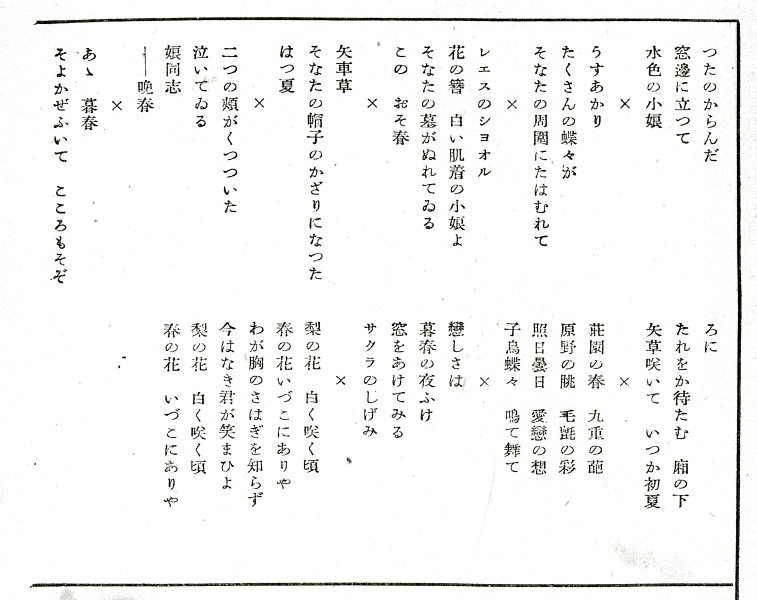 つたのからんだ
窓邊に立つて
水色の小娘
×
うすあかり
たくさんの蝶々が
そなたの周圍にたはむれて
×
レエスのシヨオル
花の簪　白い肌着の小娘よ
そなたの墓がぬれてゐる
この　おそ春
×
矢車草
そなたの帽子のかざりになつた
はつ夏
×
二つの頰がくつついた
泣いてゐる
娘同志
——晩春
×
あゝ　暮春
そよかぜふいて　こころもそぞ
ろに
たれをか待たむ　廂の下
矢草咲いて　いつか初夏
×
莊園の春　九重の葩
原野の眺　毛氈の彩
照日曇日　愛戀の想
子鳥蝶々　鳴て舞て
×
戀しさは
暮春の夜ふけ
窓をあけてみる
サクラのしげみ
×
梨の花　白く咲く頃
春の花いづこにありや
わが胸のさはぎを知らず
今はなき君が笑まひよ
梨の花　白く咲く頃
春の花　いづこにありや